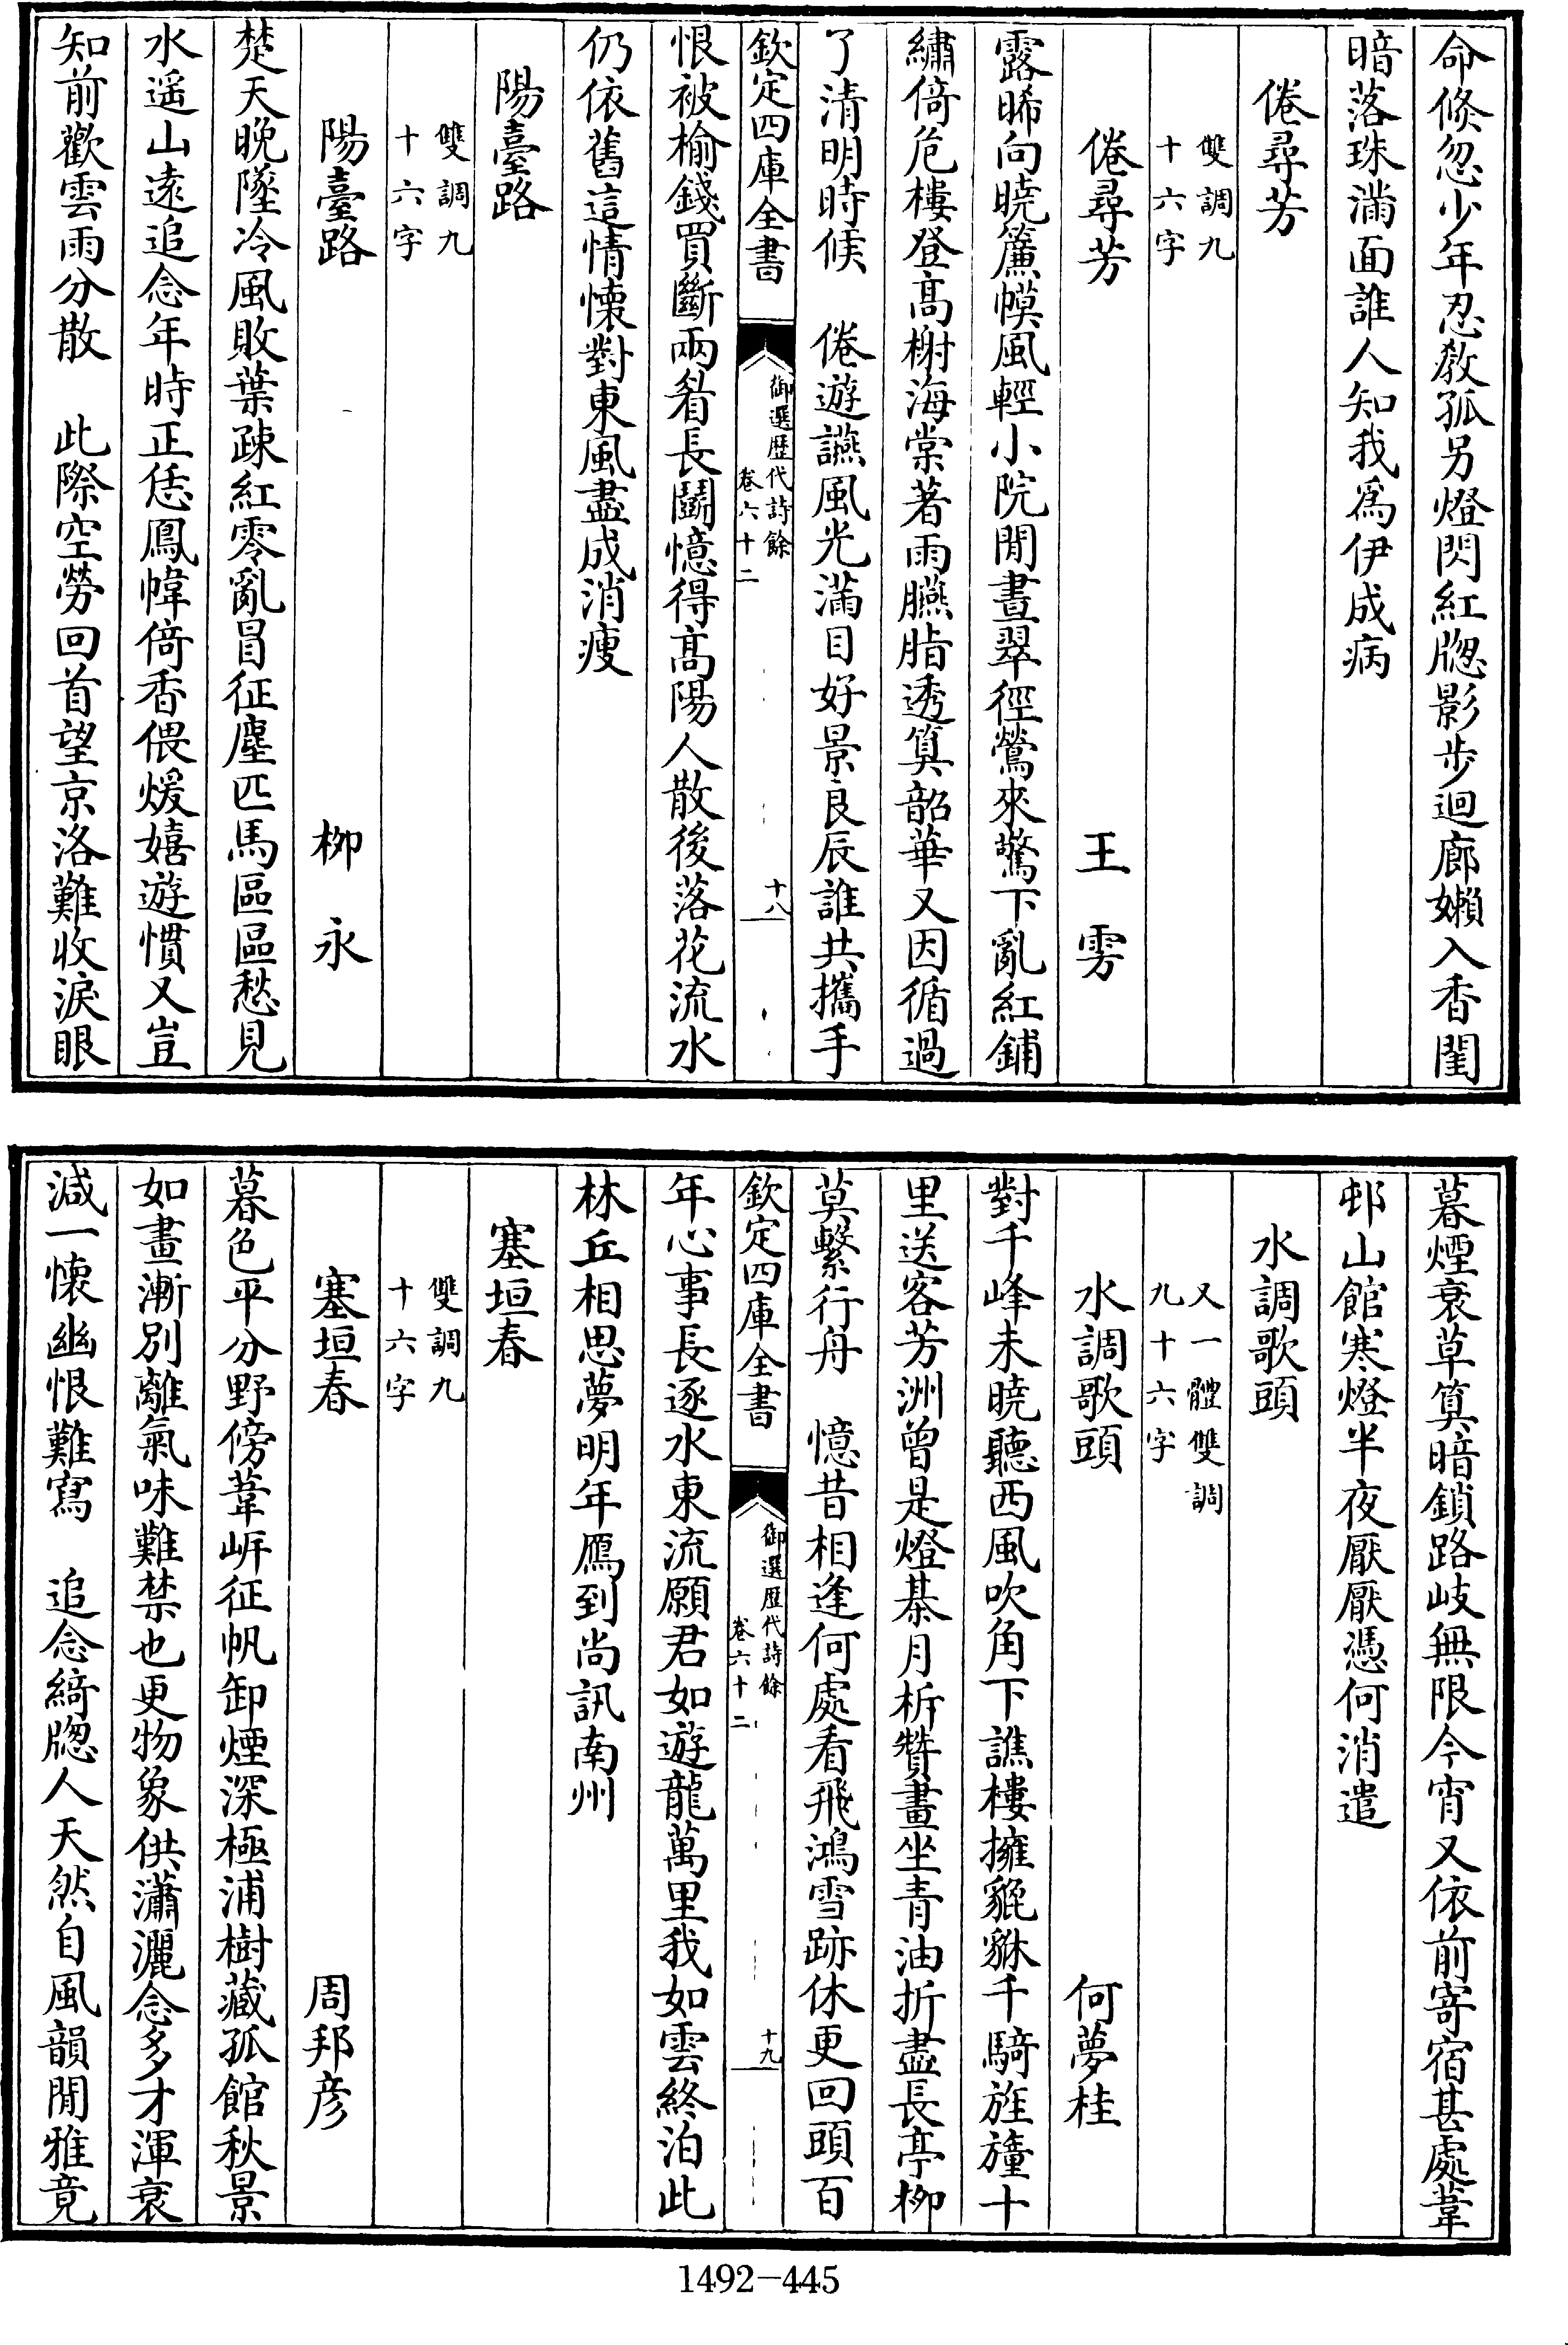 命倏忽少年忍教孤另燈閃紅牕影步迴廊嬾入香閨
暗落珠滿面誰人知我爲伊成病
倦尋芳
雙調九
十六字
倦尋芳　王雱
露晞向曉簾幙風輕小院閒晝翠徑鶯來驚下亂紅鋪
繡倚危樓登髙榭海棠著雨臙脂透算韶華又因循過
了清明時候　倦遊讌風光滿目好景良辰誰共攜手
欽定四庫全書
御選歴代詩餘
卷六十二
十八
恨被榆錢買斷兩眉長鬭憶得髙陽人散後落花流水
仍依舊這情懐對東風盡成消瘦
陽臺路
雙調九
十六字
陽臺路　柳永
楚天晚墜冷風敗葉疎紅零亂冒征塵匹馬區區愁見
水遥山逺追念年時正恁鳳幃倚香偎煖嬉遊慣又豈
知前歡雲雨分散　此際空勞回首望京洛難收淚眼
暮煙衰草算暗鎖路岐無限今宵又依前寄宿甚處葦
邨山館寒燈半夜厭厭憑何消遣
水調歌頭
又一體雙調
九十六字
水調歌頭　何夢桂
對千峰未曉聽西風吹角下譙樓擁貔貅千騎旌旜十
里送客芳洲曾是燈棊月柝贊畫坐青油折盡長亭柳
莫繫行舟　憶昔相逢何處看飛鴻雪跡休更回頭百
欽定四庫全書
御選歴代詩餘
卷六十二
十九
年心事長逐水東流願君如遊龍萬里我如雲終泊此
林丘相思夢明年鴈到尚訊南州
塞垣春
雙調九
十六字
塞垣春　周邦彦
暮色平分野傍葦岍征帆卸煙深極浦樹藏孤館秋景
如畫漸别離氣味難禁也更物象供瀟灑念多才渾衰
減一懐幽恨難寫　追念綺牕人天然自風韻閒雅竟
1492-445